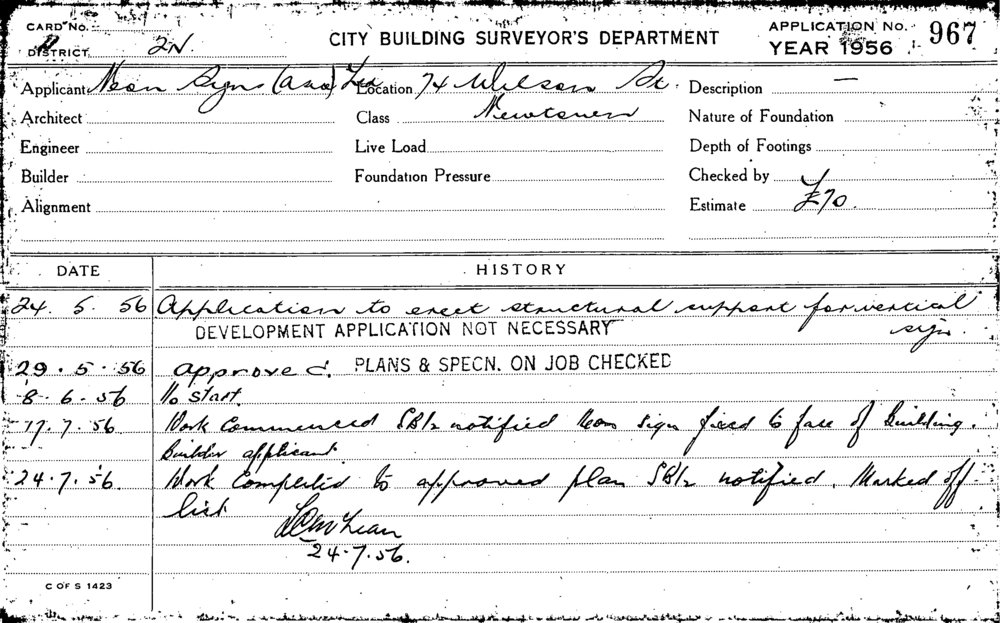 CARD No.
DISTRICT 2N
CITY BUILDING SURVEYOR'S DEPARTMENT
APPLICATION No. 967
YEAR 1956
Applicant Neon Signs (Asia) Ltd Location 74 Wilson St. Description —
Architect Class Newtown Nature of Foundation
Engineer Live Load Depth of Footings
Builder Foundation Pressure Checked by
Alignment Estimate £70.
DATE HISTORY
24. 5. 56 Application to erect structural support for vertical
sign.
DEVELOPMENT APPLICATION NOT NECESSARY
29. 5. 56 Approved. PLANS & SPECN. ON JOB CHECKED
8. 6. 56 No start.
17. 7. 56 Work Commenced SB/2 notified Neon sign fixed to face of Building.
Builder applicant.
24. 7. 56. Work Completed to approved plan SB/2 notified. Marked off
list
24. 7. 56.
C OF S 1423